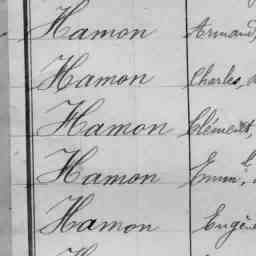 Hamon Armand,
Hamon Charles,
Hamon Clément,
Hamon Emm.l,
Hamon Eugène